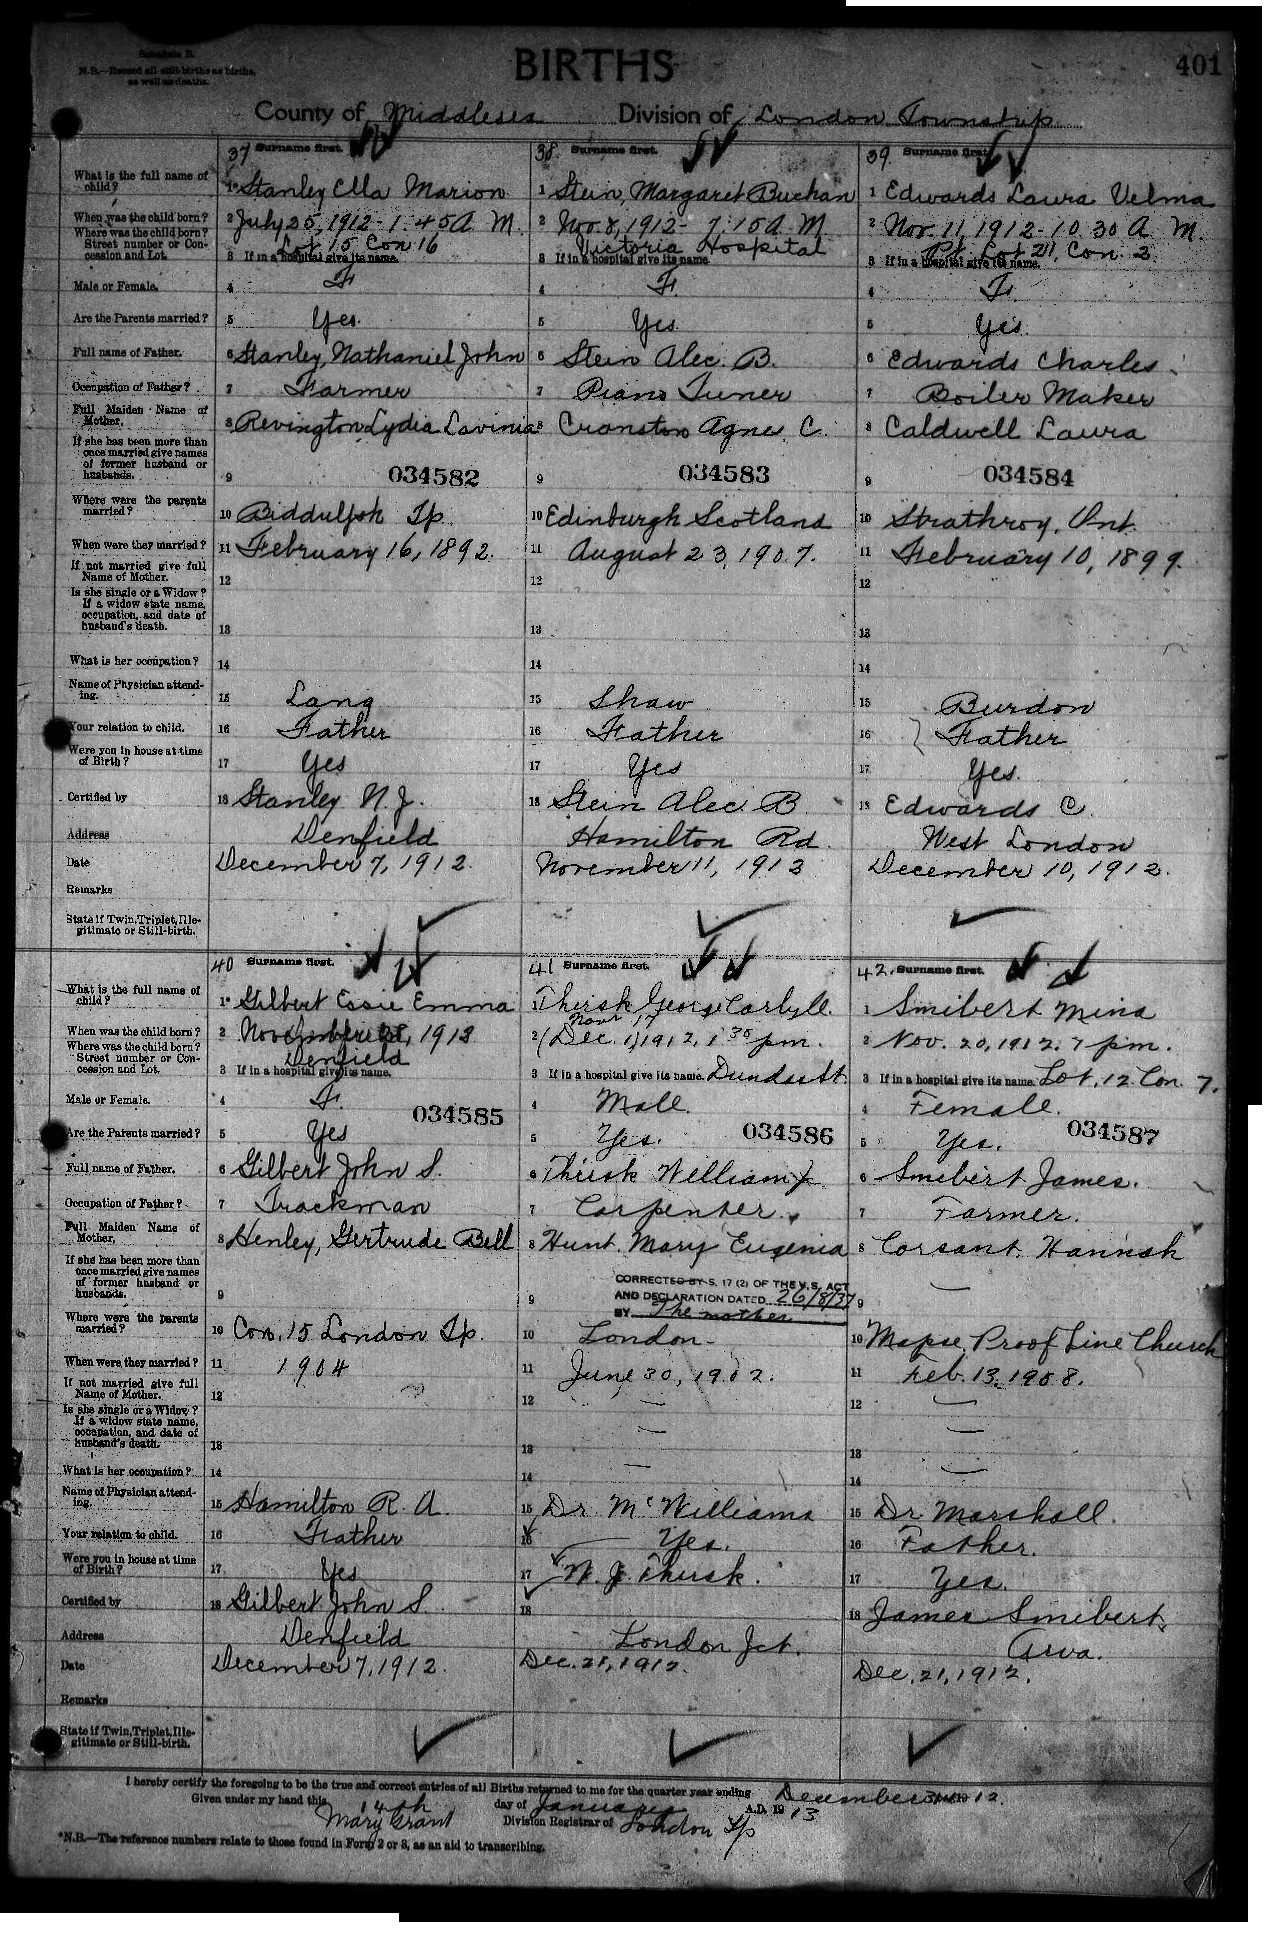 Schedule B.
N.B.—Record all still-births as births,
as well as deaths.
BIRTHS
401
County of Middlesex Division of London Township
37 Surname first.
38 Surname first.
39 Surname first.
What is the full name of child?
1* Stanley Ella Marion
1 Stein, Margaret Buchan
1 Edwards Laura Velma
When was the child born?
2 July 25, 1912 - 1.45 A M.
2 Nov. 8, 1912 - 7.15 A M
2 Nov. 11, 1912 - 10.30 A M.
Where was the child born? Street number or Concession and Lot.
Lot 15 Con 16
Victoria Hospital
Pt. Lot 24, Con. 3
3 If in a hospital give its name.
3 If in a hospital give its name.
3 If in a hospital give its name.
Male or Female.
4 F
4 F.
4 F.
Are the Parents married?
5 Yes.
5 Yes.
5 Yes.
Full name of Father.
6 Stanley, Nathaniel John
6 Stein Alec. B.
6 Edwards Charles
Occupation of Father?
7 Farmer
7 Piano Tuner
7 Boiler Maker
Full Maiden Name of Mother.
8 Revington Lydia Lavinia
8 Cranston Agnes C.
8 Caldwell Laura
If she has been more than once married give names of former husband or husbands.
9 034582
9 034583
9 034584
Where were the parents married?
10 Biddulph Tp
10 Edinburgh Scotland
10 Strathroy, Ont.
When were they married?
11 February 16, 1892.
11 August 23, 1907.
11 February 10, 1899.
If not married give full Name of Mother.
12
12
12
Is she single or a Widow? If a widow state name, occupation, and date of husband's death.
13
13
13
What is her occupation?
14
14
14
Name of Physician attending.
15 Lang
15 Shaw
15 Burdon
Your relation to child.
16 Father
16 Father
16 Father
Were you in house at time of Birth?
17 Yes
17 Yes
17 Yes.
Certified by
18 Stanley N. J.
18 Stein Alec. B
18 Edwards C.
Address
Denfield
Hamilton Rd.
West London
Date
December 7, 1912.
November 11, 1912
December 10, 1912.
Remarks
State if Twin, Triplet, Illegitimate or Still-birth.
40 Surname first.
41 Surname first.
42. Surname first.
What is the full name of child?
1* Gilbert Essie Emma
1 Thirsk George Carlyle.
1 Smibert Mina
When was the child born?
2 1912
Novr 17
2 (Dec. 1) 1912, 1 30 pm.
2 Nov. 20, 1912. 7 pm.
Where was the child born? Street number or Concession and Lot.
Denfield
3 If in a hospital give its name.
3 If in a hospital give its name. Dundas St.
3 If in a hospital give its name. Lot. 12. Con. 7.
Male or Female.
4 F.
4 Male.
4 Female.
034585
034586
034587
Are the Parents married?
5 Yes
5 Yes.
5 Yes.
Full name of Father.
6 Gilbert John S.
6 Thirsk William J.
6 Smibert James.
Occupation of Father?
7 Trackman
7 Carpenter.
7 Farmer.
Full Maiden Name of Mother,
8 Henley, Gertrude Bell
8 Hunt. Mary Eugenia
8 Corsant. Hannah
If she has been more than once married give names of former husband or husbands.
9
CORRECTED BY S. 17 (2) OF THE V.S. ACT
AND DECLARATION DATED 26/8/37
9 BY The mother
9 —
Where were the parents married?
10 Con. 15 London Tp.
10 London
10 Proof Line Church
When were they married?
11 1904
11 June 30, 1902.
11 Feb. 13, 1908.
If not married give full Name of Mother.
12
12 —
12 —
Is she single or a Widow? If a widow state name, occupation, and date of husband's death.
13
13 —
13 —
What is her occupation?
14
14 —
14 —
Name of Physician attending.
15 Hamilton R. A.
15 Dr. McWilliams
15 Dr. Marshall.
Your relation to child.
16 Father
16 Yes.
16 Father.
Were you in house at time of Birth?
17 Yes
17 W. J. Thirsk.
17 Yes.
Certified by
18 Gilbert John S.
18
18 James Smibert.
Address
Denfield
London Jct.
Arva.
Date
December 7, 1912.
Dec. 21, 1912.
Dec. 21, 1912.
Remarks
State if Twin, Triplet, Illegitimate or Still-birth.
I hereby certify the foregoing to be the true and correct entries of all Births returned to me for the quarter year ending December 31st 1912.
Given under my hand this 14th day of January A.D. 1913
Mary Grant Division Registrar of London Tp
*N.B.—The reference numbers relate to those found in Form 2 or 3, as an aid to transcribing.